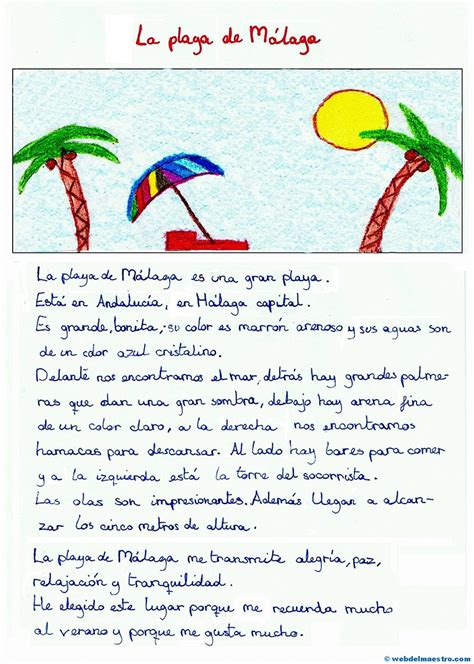 La playa de Málaga
La playa de Málaga es una gran playa.
Está en Andalucía, en Málaga capital.
Es grande, bonita, su color es marrón arenoso y sus aguas son
de un color azul cristalino.
Delante nos encontramos el mar, detrás hay grandes palme-
ras que dan una gran sombra, debajo hay arena fina
de un color claro, a la derecha nos encontramos
hamacas para descansar. Al lado hay bares para comer
y a la izquierda está la torre del socorrista.
Las olas son impresionantes. Además llegan a alcan-
zar los cinco metros de altura.
La playa de Málaga me transmite alegría, paz,
relajación y tranquilidad.
He elegido este lugar porque me recuerda mucho
al verano y porque me gusta mucho.
© webdelmaestro.com